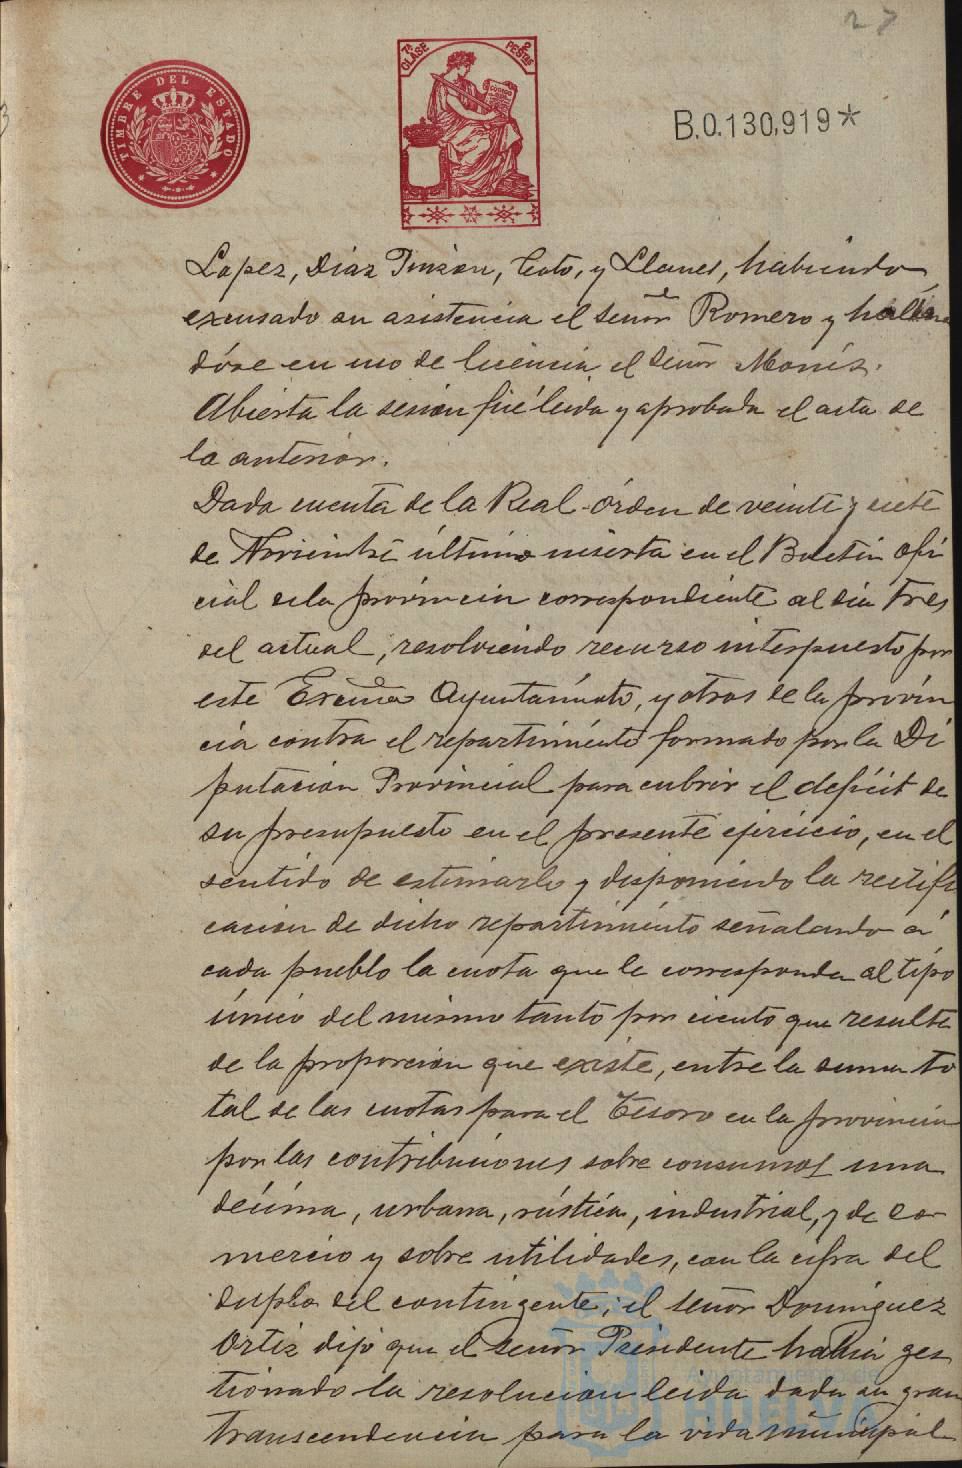 27
TIMBRE DEL ESTADO
7ª CLASE 2 PESTAS
B.0.130,919*
Lopez, Diaz Pinzon, Coto, y Llanes, habiendo
excusado su asistencia el señor Romero y hallan
dóse en uso de licencia el señor Monís.
Abierta la sesion fué leida y aprobada el acta de
la anterior.
Dada cuenta de la Real órden de veinte y siete
de Noviembre último inserta en el Boletin ofi
cial de la provincia correspondiente al dia tres
del actual, resolviendo recurso interpuesto por
este Excmo Ayuntamiento, y otros de la provin
cia contra el repartimiento formado por la Di
putacion Provincial para cubrir el deficit de
su presupuesto en el presente ejercicio, en el
sentido de estimarlo y disponiendo la rectifi
cacion de dicho repartimiento señalando á
cada pueblo la cuota que le corresponda al tipo
único del mismo tanto por ciento que resulte
de la proporcion que existe, entre la suma to
tal de las cuotas para el Tesoro en la provincia
por las contribuciones sobre consumos una
décima, urbana, rústica, industrial, y de co
mercio y sobre utilidades, con la cifra del
duplo del contingente; el señor Dominguez
Ortiz dijo que el señor Presidente habia ges
tionado la resolucion leida dada su gran
transcendencia para la vida municipal
Ayuntamiento de
HUELVA